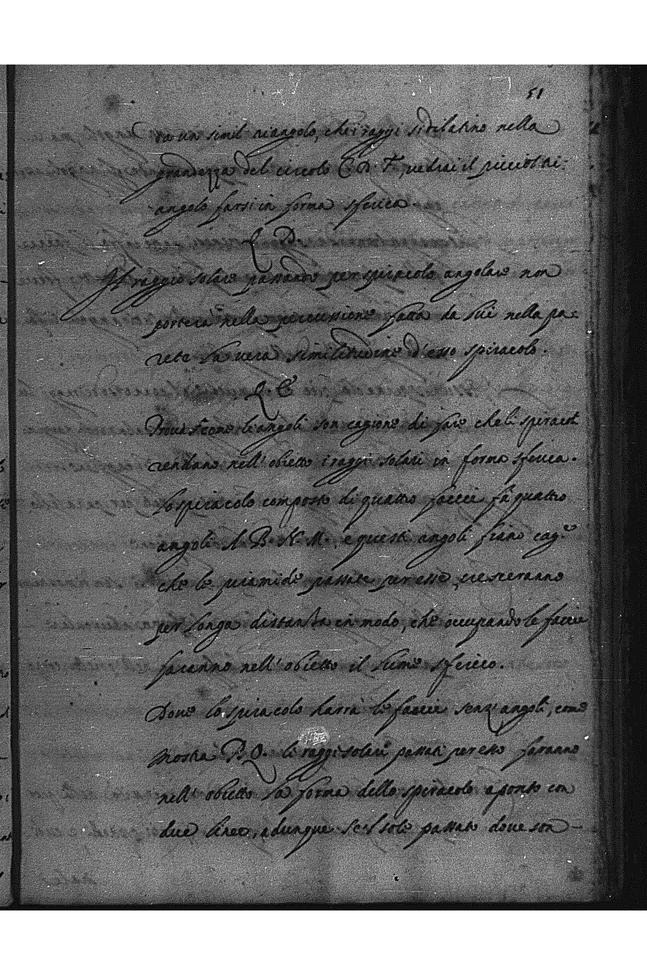 51
va un simil triangolo, che i raggi si dilatino nella
grandezza del circolo C D F, vedrai il picciol tri-
angolo farsi in forma sferica
D
Il raggio solare passando per spiracolo angolare non
porterà nella percussione fatta da lui nella pa-
rete la vera similitudine d'esso spiracolo.
E
come li angoli son cagione di fare che li spiracoli
rendano nell'obietto i raggi solari in forma sferica.
Lo spiracolo composto di quattro faccie fa quattro
angoli A B N M, e questi angoli fiano cag.e
che le piramide passate per esse, cresceranno
per longa distanza in modo, che occupando le faccie
faranno nell'obietto il lume sferico.
Dove lo spiracolo harrà le faccie senz'angoli, come
mostra P. O. le raggi solari passati per esso faranno
nell'obietto la forma dello spiracolo aponto con
due linee, adunque se 'l sole passato dove son-